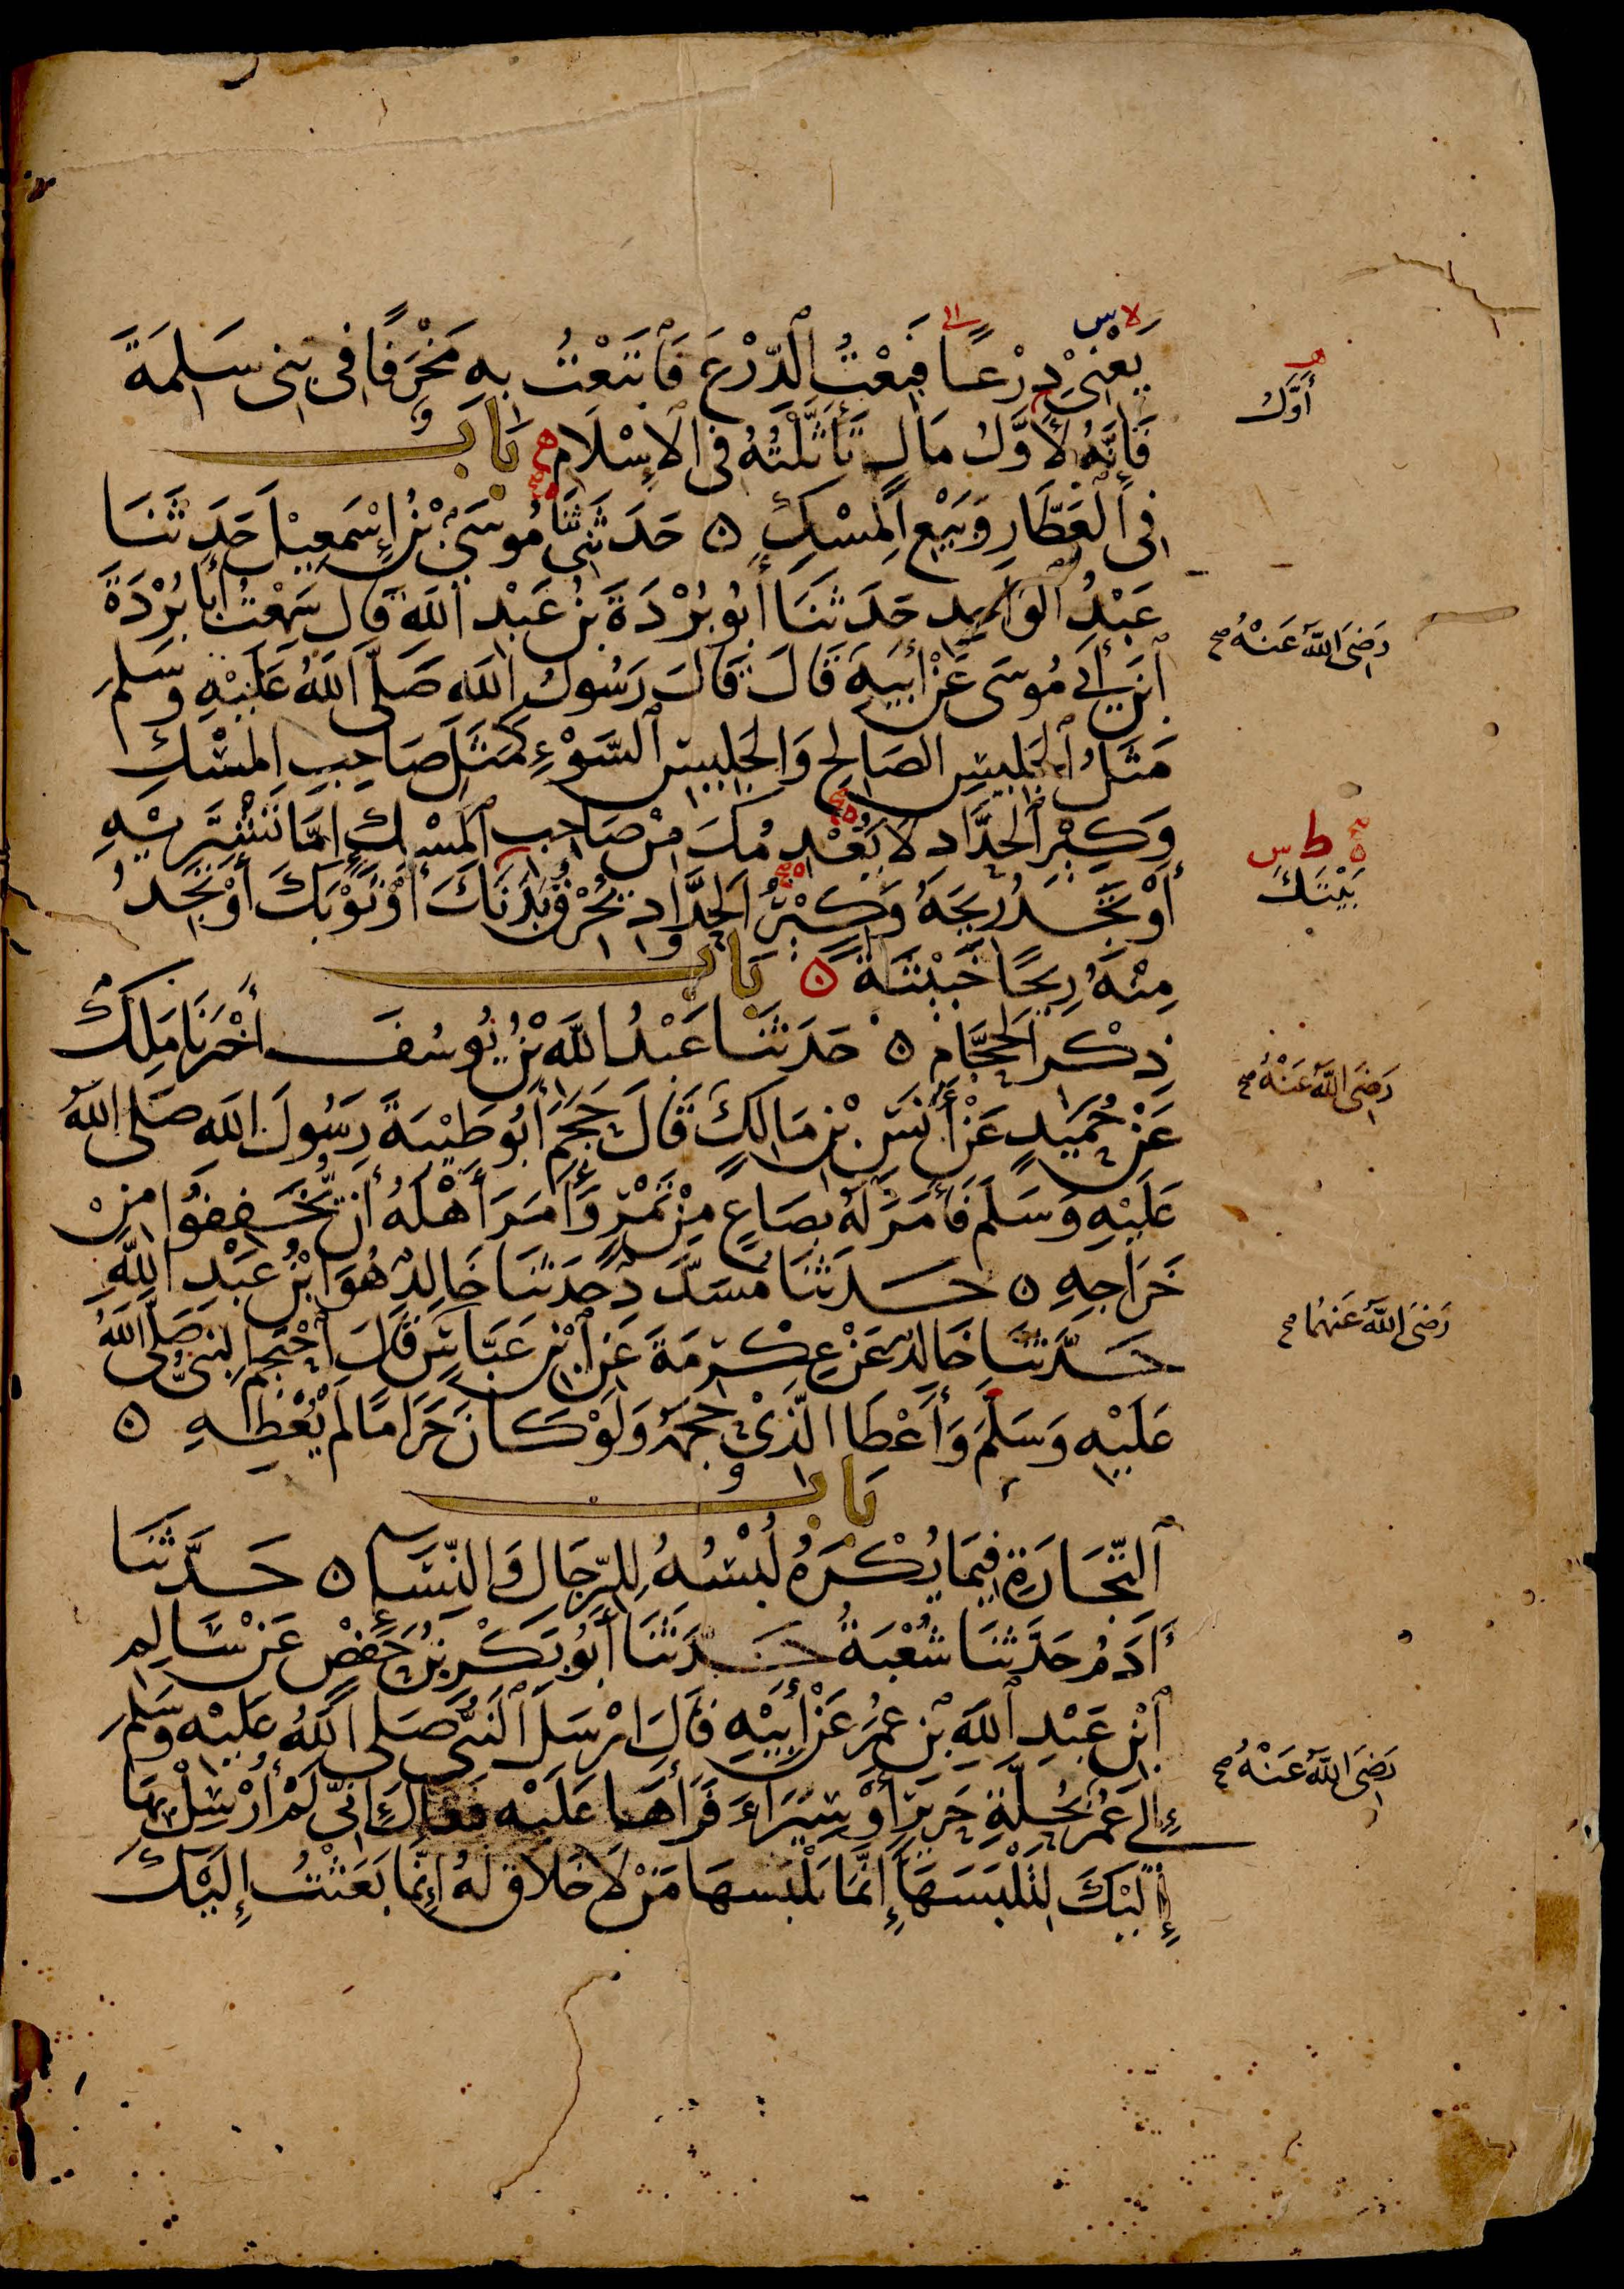 يَعْنِي دِرْعًا فَبِعْتُ الدِّرْعَ فَابْتَعْتُ بِهِ مَخْرَفًا فِي بَنِي سَلِمَةَ
أَوَّلُ
فَإِنَّهُ لَأَوَّلُ مَالٍ تَأَثَّلْتُهُ فِي الْإِسْلَامِ بَابٌ
فِي الْعَطَّارِ وَبَيْعِ الْمِسْكِ ۝ حَدَّثَنِي مُوسَى بْنُ إِسْمَعِيلَ حَدَّثَنَا
عَبْدُ الْوَاحِدِ حَدَّثَنَا أَبُو بُرْدَةَ بْنُ عَبْدِ اللَّهِ قَالَ سَمِعْتُ أَبَا بُرْدَةَ
رَضِيَ اللَّهُ عَنْهُ صح
ابْنَ أَبِي مُوسَى عَنْ أَبِيهِ قَالَ قَالَ رَسُولُ اللَّهِ صَلَّى اللَّهُ عَلَيْهِ وَسَلَّمَ
مَثَلُ الْجَلِيسِ الصَّالِحِ وَالْجَلِيسِ السَّوْءِ كَمَثَلِ صَاحِبِ الْمِسْكِ
وَكِيرِ الْحَدَّادِ لَا يَعْدِمُكَ مِنْ صَاحِبِ الْمِسْكِ إِمَّا تَشْتَرِيهِ
ط س
بَيْتَكَ
أَوْ تَجِدُ رِيحَهُ وَكِيرُ الْحَدَّادِ يُحْرِقُ بَدَنَكَ أَوْ ثَوْبَكَ أَوْ تَجِدُ
مِنْهُ رِيحًا خَبِيثَةً ۝ بَابُ
ذِكْرِ الْحَجَّامِ ۝ حَدَّثَنَا عَبْدُ اللَّهِ بْنُ يُوسُفَ أَخْبَرَنَا مَلِكٌ
رَضِيَ اللَّهُ عَنْهُ صح
عَنْ حُمَيْدٍ عَنْ أَنَسِ بْنِ مَالِكٍ قَالَ حَجَمَ أَبُو طَيْبَةَ رَسُولَ اللَّهِ صَلَّى اللَّهُ
عَلَيْهِ وَسَلَّمَ فَأَمَرَ لَهُ بِصَاعٍ مِنْ تَمْرٍ وَأَمَرَ أَهْلَهُ أَنْ يُخَفِّفُوا مِنْ
خَرَاجِهِ ۝ حَدَّثَنَا مُسَدَّدٌ حَدَّثَنَا خَالِدٌ هُوَ ابْنُ عَبْدِ اللَّهِ
رَضِيَ اللَّهُ عَنْهُمَا صح
حَدَّثَنَا خَالِدٌ عَنْ عِكْرِمَةَ عَنِ ابْنِ عَبَّاسٍ قَالَ احْتَجَمَ النَّبِيُّ صَلَّى اللَّهُ
عَلَيْهِ وَسَلَّمَ وَأَعْطَا الَّذِي حَجَمَهُ وَلَوْ كَانَ حَرَامًا لَمْ يُعْطِهِ ۝
بَابُ
التِّجَارَةِ فِيمَا يُكْرَهُ لُبْسُهُ لِلرِّجَالِ وَالنِّسَاءِ ۝ حَدَّثَنَا
آدَمُ حَدَّثَنَا شُعْبَةُ حَدَّثَنَا أَبُو بَكْرِ بْنُ حَفْصٍ عَنْ سَالِمِ
ابْنِ عَبْدِ اللَّهِ بْنِ عُمَرَ عَنْ أَبِيهِ قَالَ أَرْسَلَ النَّبِيُّ صَلَّى اللَّهُ عَلَيْهِ وَسَلَّمَ
رَضِيَ اللَّهُ عَنْهُ صح
إِلَى عُمَرَ بِحُلَّةِ حَرِيرٍ أَوْ سِيَرَاءَ فَرَأَهَا عَلَيْهِ فَقَالَ إِنِّي لَمْ أُرْسِلْ بِهَا
إِلَيْكَ لِتَلْبَسَهَا إِنَّمَا يَلْبَسُهَا مَنْ لَا خَلَاقَ لَهُ إِنَّمَا بَعَثْتُ إِلَيْكَ